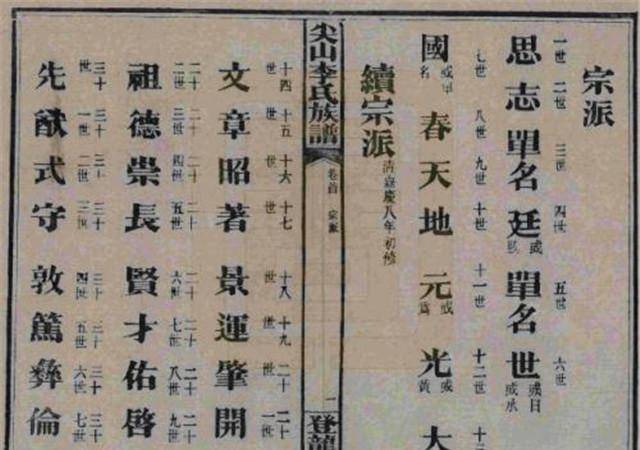 宗派
一世 二世 三世 四世 五世 六世
思志單名廷或單名世或日或承
七世 八世 九世 十世 十一世 十二世
國或甲名春天地元或為光或黃大
續宗派 清嘉慶八年初修
尖山李氏族譜 卷首 宗派 一 登龍
十四世 十五世 十六世 十七世 十八世 十九世 二十世 二十一世
文章昭著景運肇開
二十二世 二十三世 二十四世 二十五世 二十六世 二十七世 二十八世 二十九世
祖德崇長賢才佑啓
三十世 三十一世 三十二世 三十三世 三十四世 三十五世 三十六世 三十七世
先猷式守敦篤彝倫